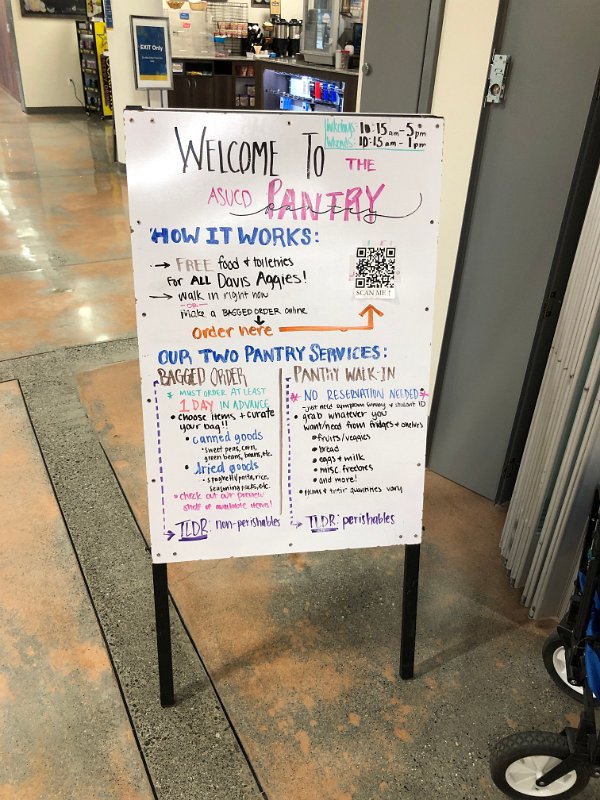 EXIT Only
WELCOME TO THE
wkdays: 10:15am-5pm
wkends: 10:15am-1pm
ASUCD PANTRY
pantry
HOW IT WORKS:
→ FREE food & toiletries
For ALL Davis Aggies!
→ walk in right now
-OR-
make a BAGGED ORDER online
order here
SCAN ME ↑
OUR TWO PANTRY SERVICES:
BAGGED ORDER
* MUST ORDER AT LEAST
1 DAY IN ADVANCE
• choose items & curate
your bag!!
• canned goods
- sweet peas, corn,
green beans, beans, etc.
• dried goods
- spaghetti/pasta, rice,
seasoning packs, etc.
• check out our preview
shelf of available items!
TLDR: non-perishables
PANTRY WALK-IN
* NO RESERVATION NEEDED *
- just need symptom survey & student ID
• grab whatever you
want/need from fridges & shelves
• fruits/veggies
• bread
• eggs & milk
• misc. freezies
• and more!
• items & their quantities vary
TLDR: perishables